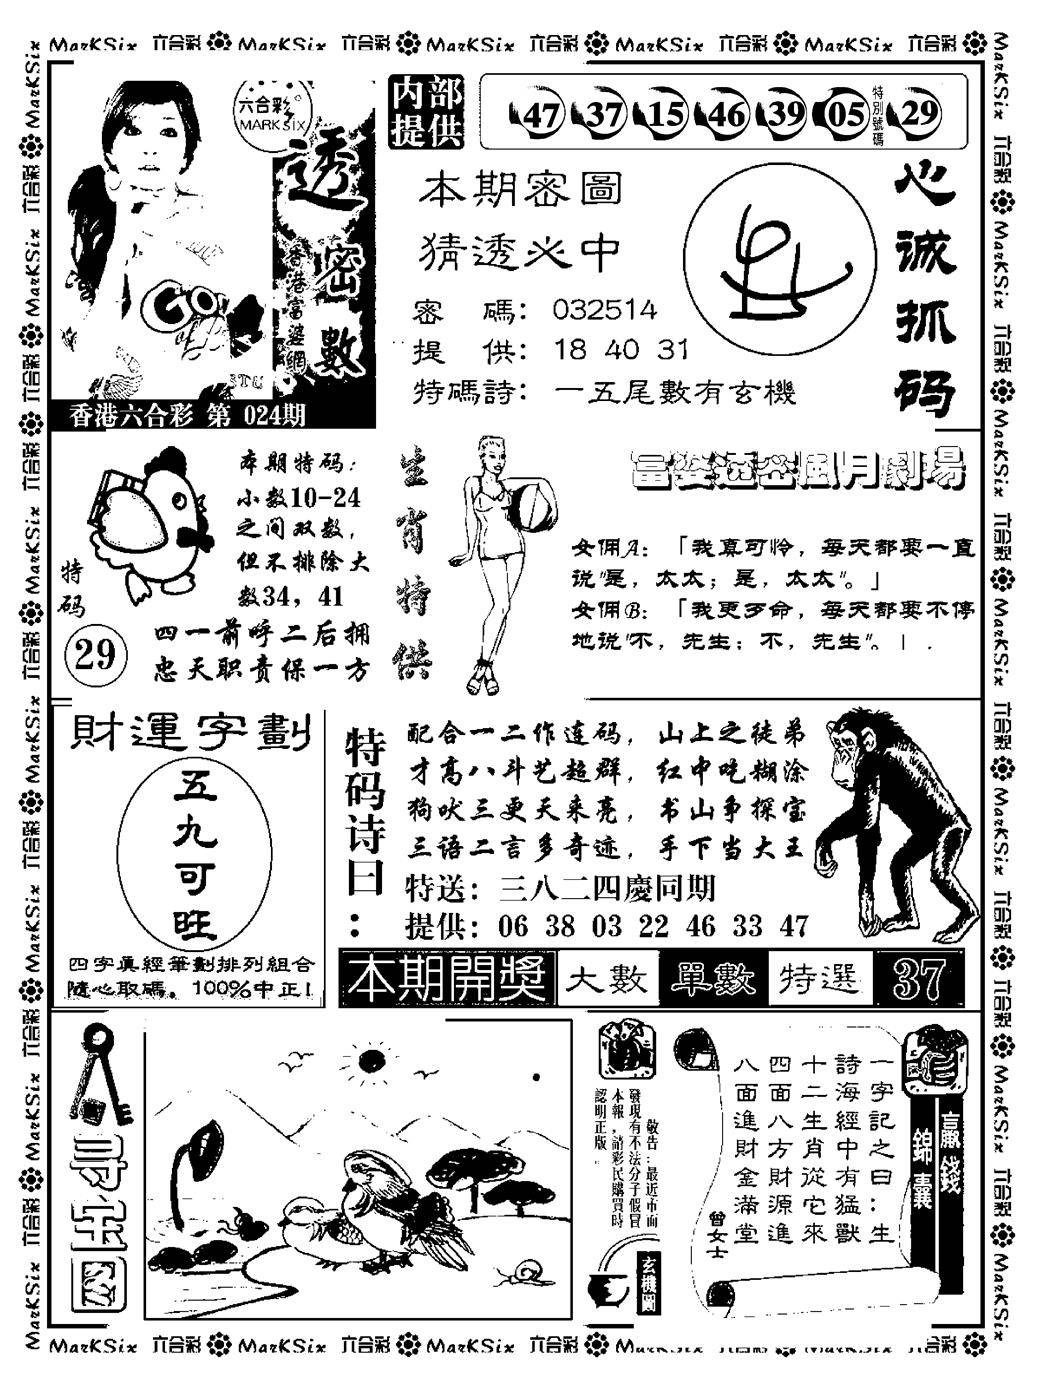 MarKSix 六合彩 MarKSix 六合彩 MarKSix 六合彩 MarKSix 六合彩 MarKSix 六合彩
六合彩
MARKSIX
透密數
香港富婆網
香港六合彩 第 024期
内部
提供
47 37 15 46 39 05 特別號碼 29
本期密圖
猜透必中
密 碼: 032514
提 供: 18 40 31
特碼詩: 一五尾數有玄機
心诚抓码
本期特码:
小数10-24
之间双数,
但不排除大
数34, 41
特码
29
四一前呼二后拥
忠天职责保一方
生肖特供
富婆透密風月劇場
女佣A: 「我真可怜, 每天都要一直
说"是, 太太; 是, 太太"。」
女佣B: 「我更歹命, 每天都要不停
地说"不, 先生; 不, 先生"。
財運字劃
五九可旺
四字真經筆劃排列組合
隨心取碼。100%中正!
特码诗曰:
配合一二作连码, 山上之徒弟
才高八斗艺超群, 红中吃糊涂
狗吠三更天来亮, 书山争探宝
三语二言多奇迹, 手下当大王
特送: 三八二四慶同期
提供: 06 38 03 22 46 33 47
本期開獎 大數 單數 特選 37
尋宝图
敬告:最近市面
發現有不法分子假冒
本報,請彩民購買時
認明正版。
玄機圖
贏錢
錦囊
一字記之曰:生
詩海經中有猛獸
十二生肖從它來
四面八方財源進
八面進財金滿堂
曾女士
MarKSix 六合彩 MarKSix 六合彩 MarKSix 六合彩